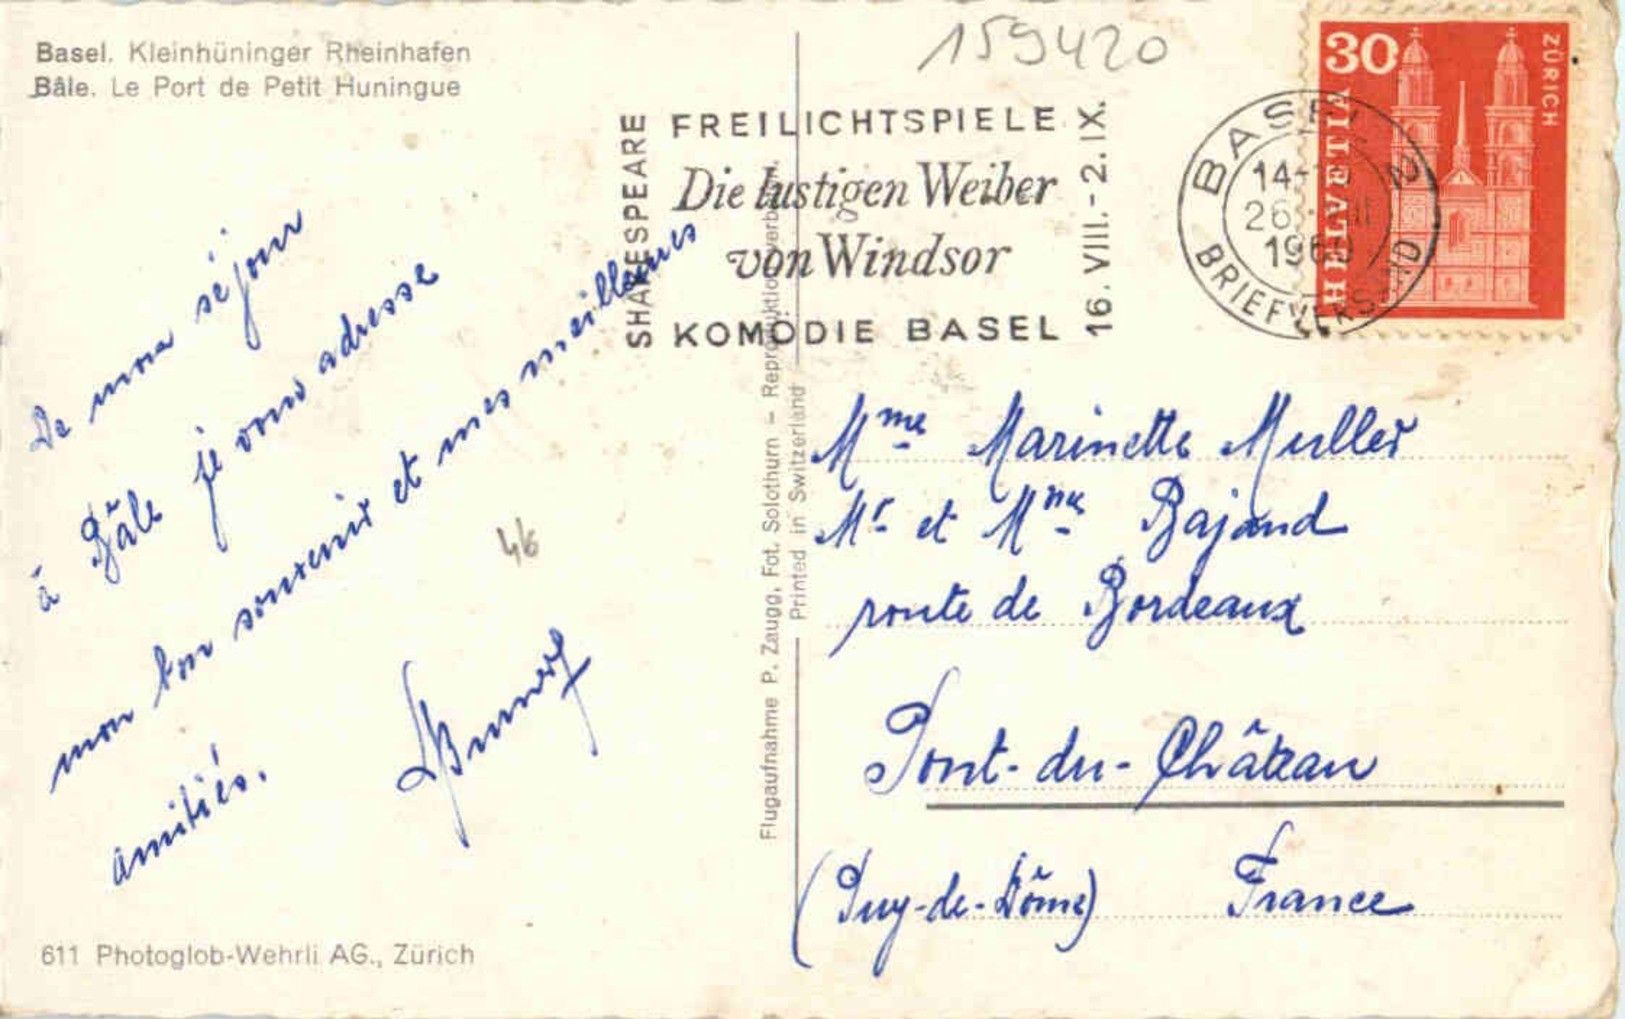 Basel. Kleinhüninger Rheinhafen
Bâle. Le Port de Petit Huningue
159420
SHAKESPEARE
FREILICHTSPIELE
Die lustigen Weiber
von Windsor
KOMÖDIE BASEL
16. VIII.-2. IX.
BASEL 2
14-
26. VIII
1960
BRIEFVERSAND
30
HELVETIA
ZÜRICH
De mon séjour
à Bâle je vous adresse
mon bon souvenir et mes meilleures
amitiés.
46
Mme Marinette Muller
Mr et Mme Bajand
route de Bordeaux
Pont-du-Château
(Puy-de-Dôme) France
Flugaufnahme P. Zaugg, Fot. Solothurn – Reproduktion verboten.
Printed in Switzerland
611 Photoglob-Wehrli AG., Zürich